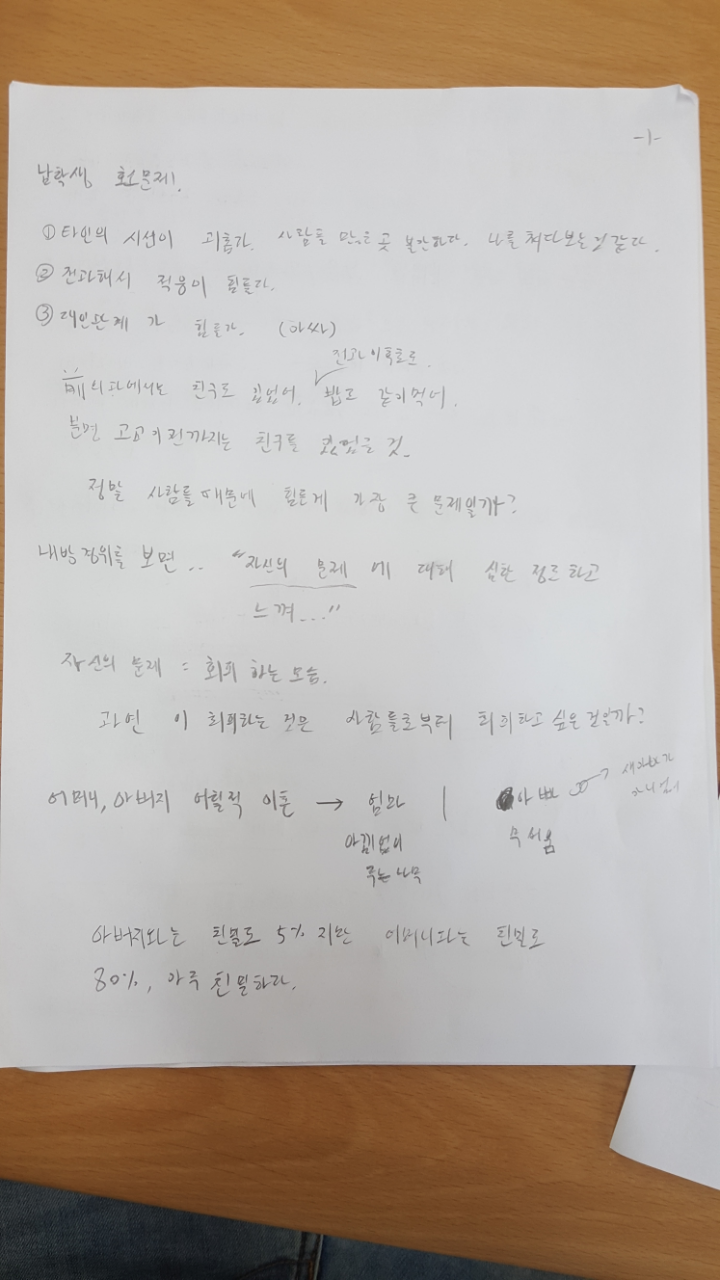 -1-
남학생, 호소문제!
① 타인의 시선이 괴롭다. 사람들 많은 곳 불안하다. 나를 쳐다보는것 같다.
② 전과해서 적응이 힘들다.
③ 대인관계가 힘들다. (아싸)
전과 이후로
前의 과에서는 친구도 있었어, 밥도 같이먹어.
분명 고2이전까지는 친구를
정말 사람들때문에 힘든게 가장 큰 문제일까?
내방경위를 보면.. "자신의 문제에 대해 심한 정도하고
느껴..."
자신의 문제 = 회피하는 모습.
과연 이 회피하는 것은 사람들로부터 회피하고 싶은 것일까?
어머니, 아버지 어릴적 이혼 → 엄마 | 아빠 → 새아빠가
아낌없이 무서움
주는 나무
아버지와는 친밀도 5%지만 어머니와는 친밀도
80%, 아주 친밀하다.